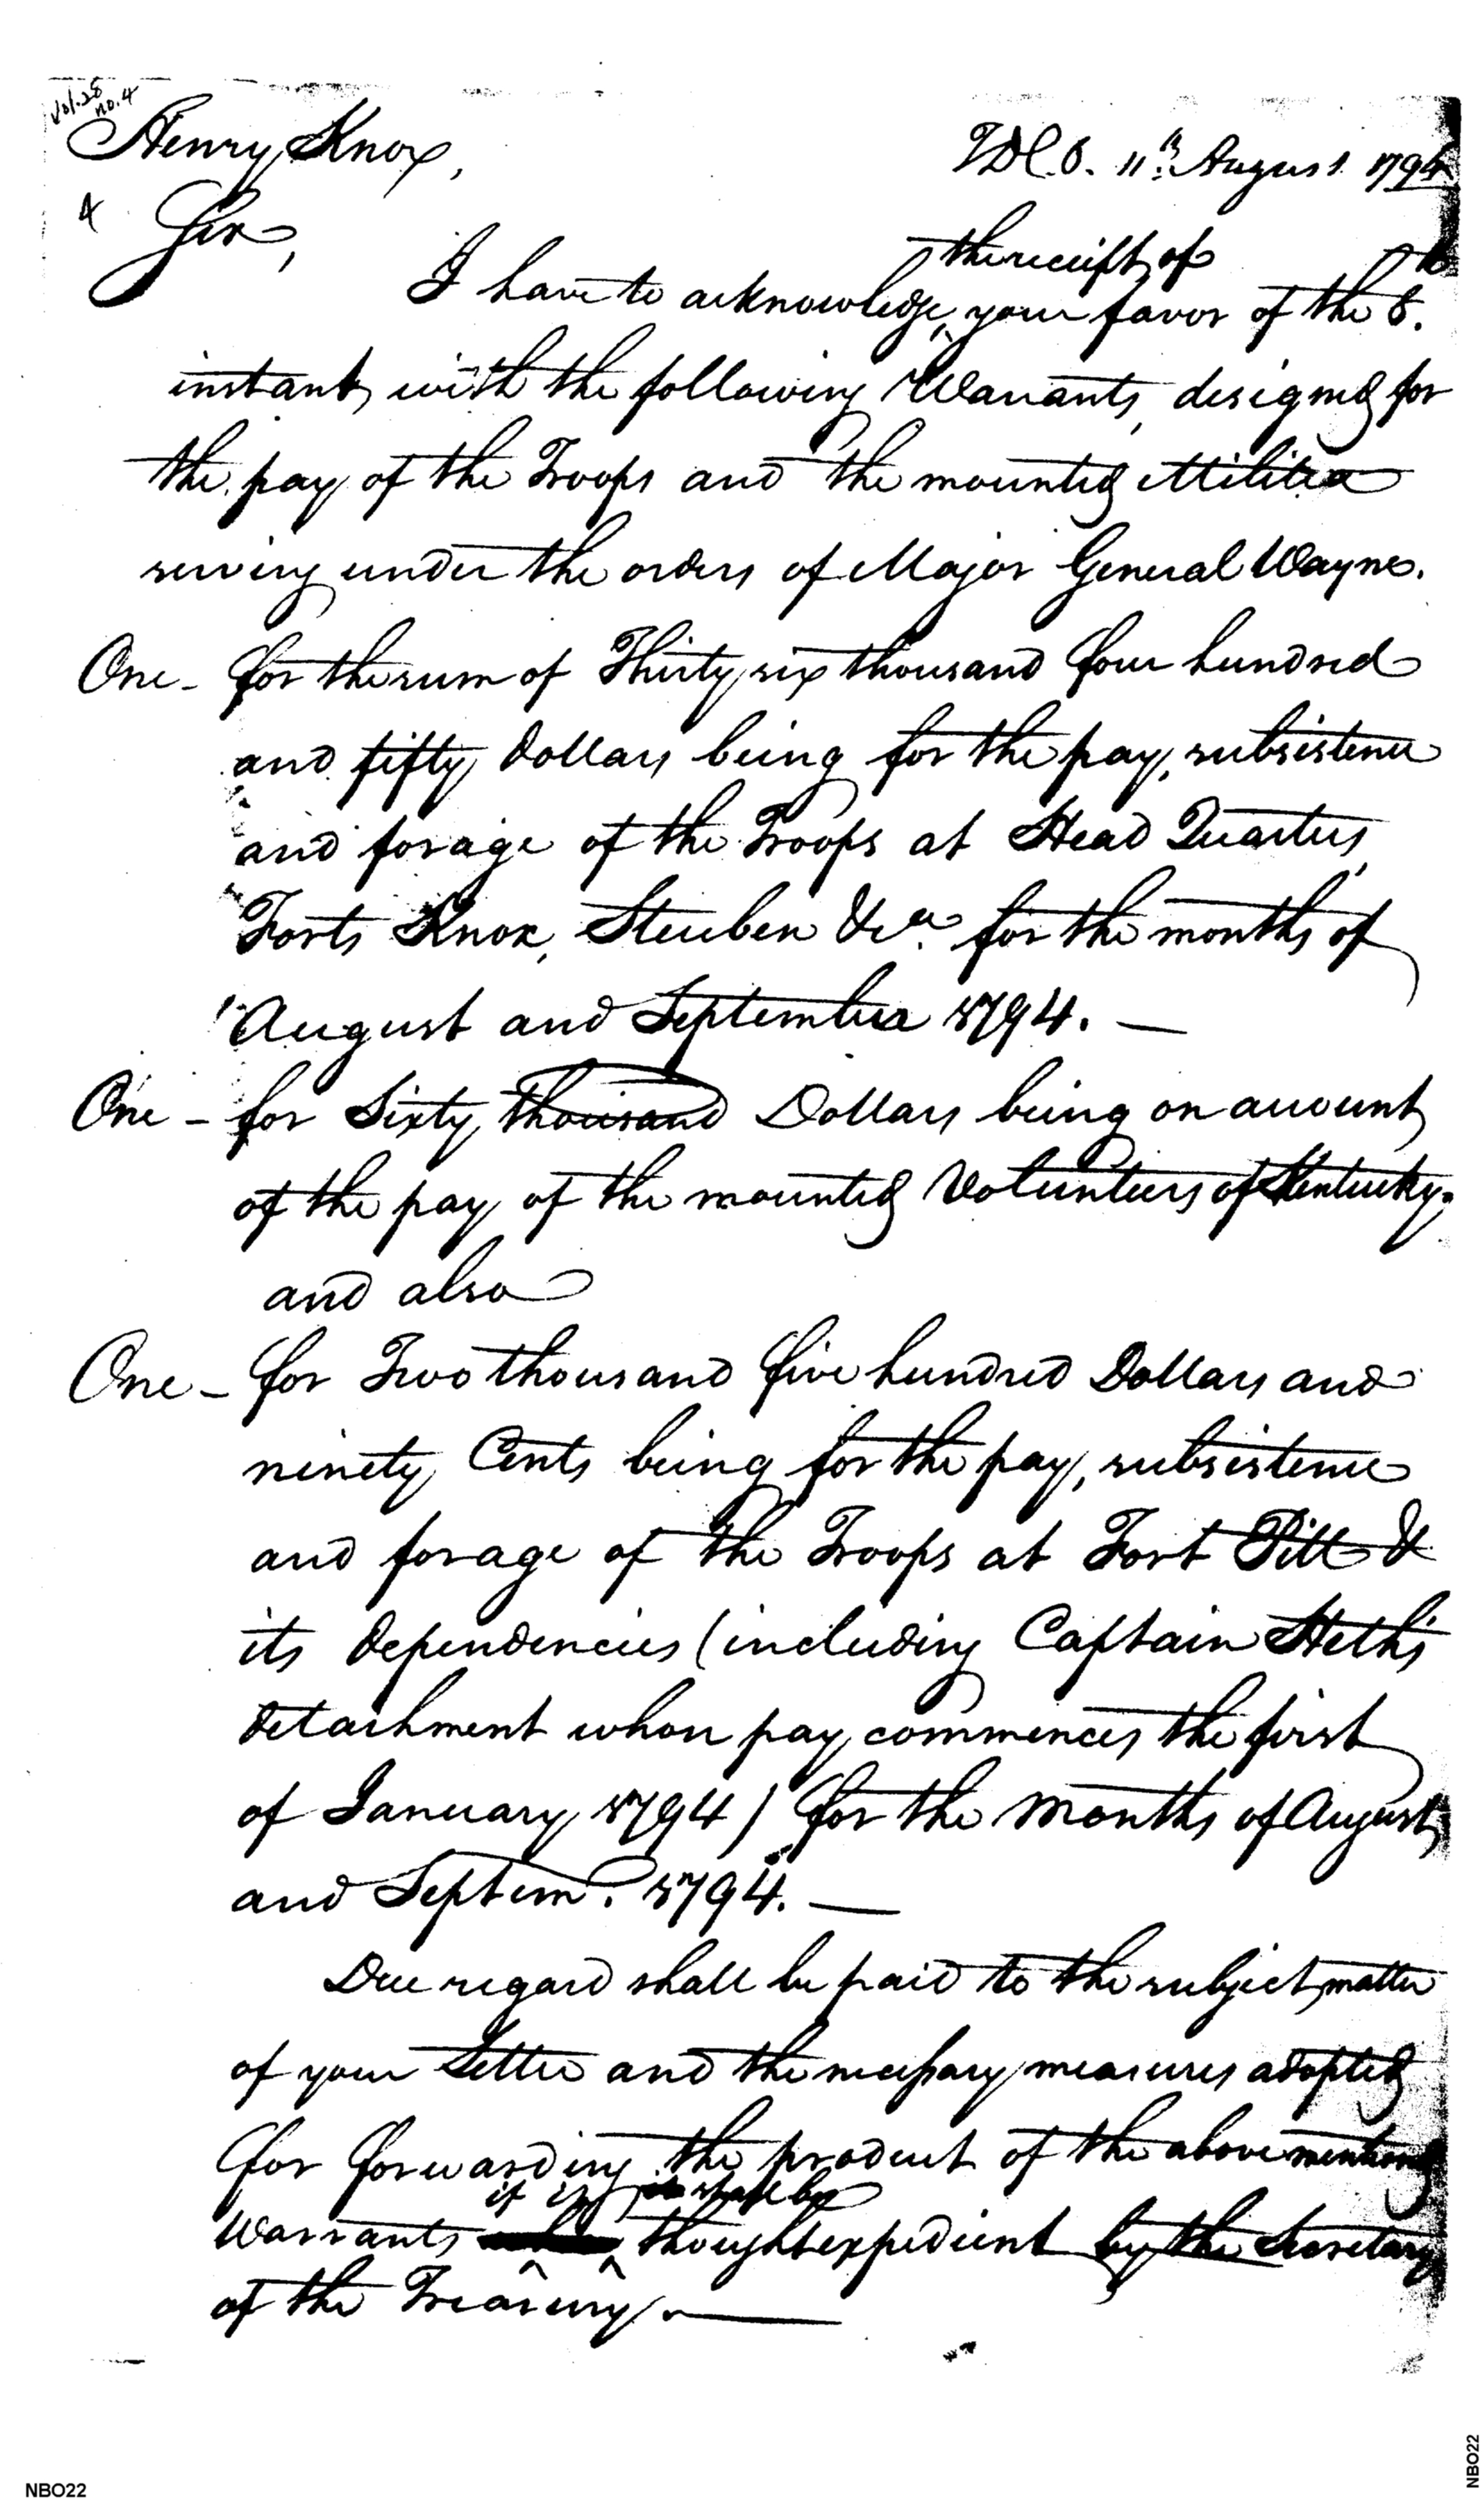 Vol. 28
no. 4
Henry Knox,
T.D.O. 11th August 1794
4
Sir,
the receipt of
I have to acknowledge, your favor of the 8th
instant, with the following Warrants, designed for
the pay of the Troops and the mounted Militia
serving under the orders of Major General Wayne.
One - for the sum of Thirty six thousand four hundred
and fifty Dollars being for the pay, subsistence
and forage of the Troops at Head Quarters,
Forts Knox, Steuben &ca. for the months of
August and September 1794. —
One - for Sixty thousand Dollars being on account
of the pay of the mounted Volunteers of Kentucky.
and also
One - for Two thousand five hundred Dollars and
ninety Cents being for the pay, subsistence
and forage of the Troops at Fort Pitt &
its dependencies (including Captain Heth's
detachment whose pay commences the first
of January 1794) for the months of August
and Septemr. 1794. —
Due regard shall be paid to the subject matter
of your Letter and the necessary measures adopted
for forwarding the product of the abovementioned
if it shall be
Warrants thought expedient by the Secretary
of the Treasury. —
NBO22
NBO22